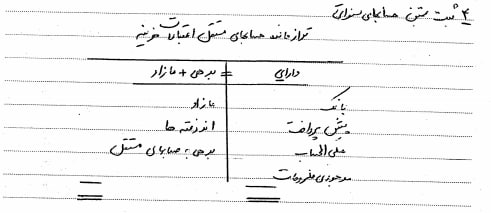 ۴ ثبت بستن حسابهای سنواتی
تراز مانده حسابهای مستقل اعتبارات هزینه
دارایی = بدهی + مازاد
بانک
مازاد
پیش پرداخت
اندوخته ها
علی الحساب
بدهی به حسابهای مستقل
موجودی ملزومات